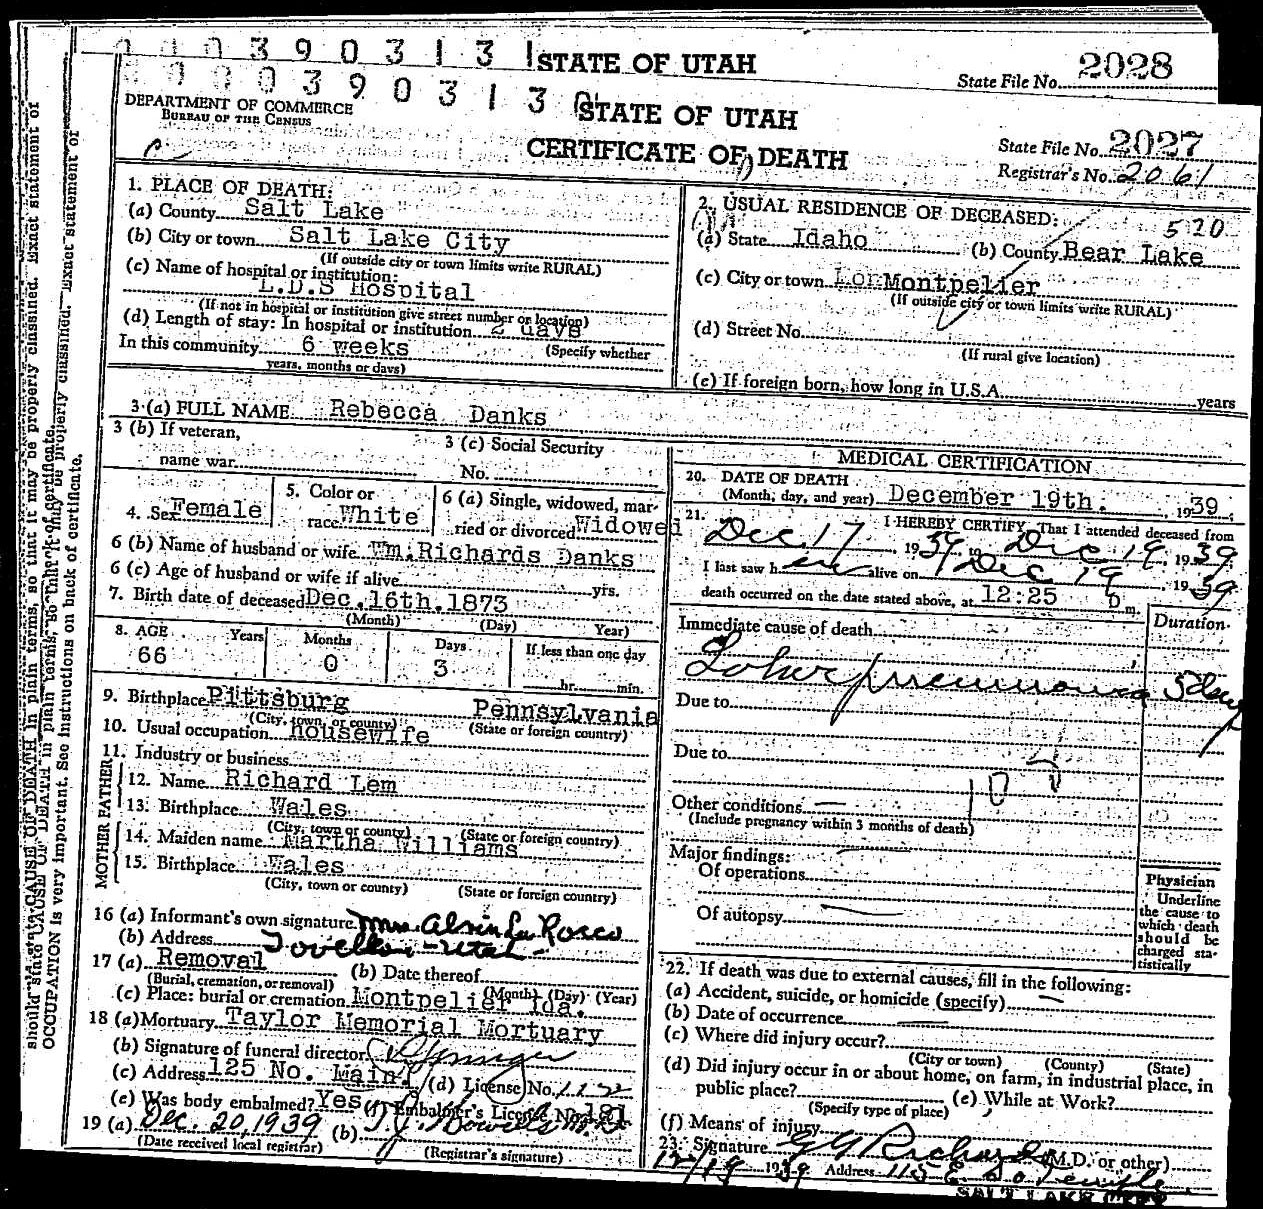 0003903131 STATE OF UTAH State File No. 2028
000390313 STATE OF UTAH
DEPARTMENT OF COMMERCE
BUREAU OF THE CENSUS
CERTIFICATE OF DEATH
State File No. 2027
Registrar's No. 2061
1. PLACE OF DEATH:
(a) County Salt Lake
(b) City or town Salt Lake City
(If outside city or town limits write RURAL)
(c) Name of hospital or institution:
L.D.S Hospital
(If not in hospital or institution give street number or location)
(d) Length of stay: In hospital or institution 2 days
In this community 6 weeks (Specify whether
years, months or days)
2. USUAL RESIDENCE OF DECEASED: 520
(a) State Idaho (b) County Bear Lake
(c) City or town Montpelier
(If outside city or town limits write RURAL)
(d) Street No.
(If rural give location)
(e) If foreign born, how long in U.S.A. years
3 (a) FULL NAME Rebecca Danks
3 (b) If veteran, name war
3 (c) Social Security No.
4. Sex Female
5. Color or race White
6 (a) Single, widowed, married or divorced Widowed
6 (b) Name of husband or wife Wm. Richards Danks
6 (c) Age of husband or wife if alive yrs.
7. Birth date of deceased Dec. 16th. 1873
(Month) (Day) Year)
8. AGE Years Months Days If less than one day
66 0 3 hr. min.
9. Birthplace Pittsburg Pennsylvania
(City, town, or county) (State or foreign country)
10. Usual occupation housewife
11. Industry or business
FATHER
12. Name Richard Lem
13. Birthplace Wales
(City, town or county) (State or foreign country)
MOTHER
14. Maiden name Martha Williams
15. Birthplace Wales
(City, town or county) (State or foreign country)
16 (a) Informant's own signature Mrs. Alvin La Rocco
(b) Address Utah
17 (a) Removal (b) Date thereof
(Burial, cremation, or removal) (Month) (Day) (Year)
(c) Place: burial or cremation Montpelier Ida.
18 (a) Mortuary Taylor Memorial Mortuary
(b) Signature of funeral director
(c) Address 125 No. Main (d) License No. 112
(e) Was body embalmed? Yes (f) Embalmer's License No. 181
19 (a) Dec. 20, 1939 (b) T.J. Howells M.D.
(Date received local registrar) (Registrar's signature)
MEDICAL CERTIFICATION
20. DATE OF DEATH
(Month, day, and year) December 19th. 1939.
21. I HEREBY CERTIFY, That I attended deceased from
Dec 17, 1939 to Dec 19, 1939
I last saw her alive on Dec 19 1939
death occurred on the date stated above, at 12:25 p m.
Immediate cause of death Duration
Lobar pneumonia 5 days
Due to
Due to
Other conditions
(Include pregnancy within 3 months of death)
Major findings:
Of operations
Of autopsy
Physician
Underline the cause to which death should be charged statistically
22. If death was due to external causes, fill in the following:
(a) Accident, suicide, or homicide (specify)
(b) Date of occurrence
(c) Where did injury occur?
(City or town) (County) (State)
(d) Did injury occur in or about home, on farm, in industrial place, in
public place? (e) While at Work?
(Specify type of place)
(f) Means of injury
23. Signature G G Richards (M.D. or other)
12/19 1939 Address 115 E So Temple
SALT LAKE CITY
OCCUPATION is very important. See Instructions on back of certificate.